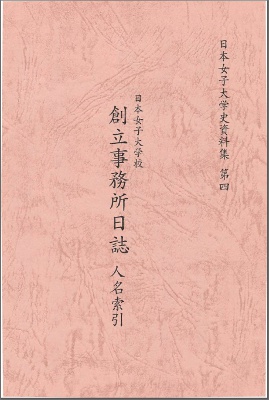 日本女子大学史資料集 第四
日本女子大学校
創立事務所日誌 人名索引